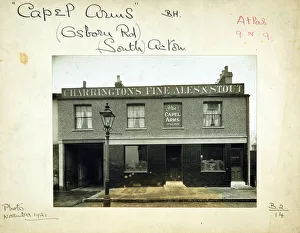 "Capel Arms"
B.H.
(Osborn Rd)
(South) Acton
Atlas
9 N 9.
CHARRINGTON'S FINE ALES & STOUT
The
CAPEL
ARMS
Photo
November
B.2
14